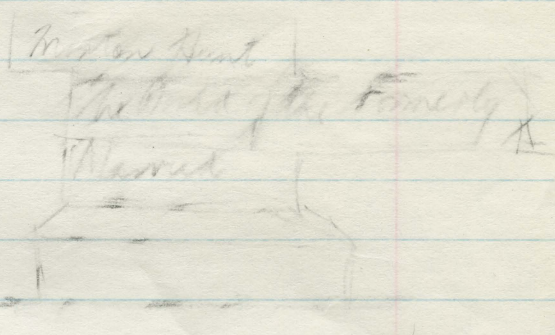 Morton Hunt
The World of the Formerly
Married